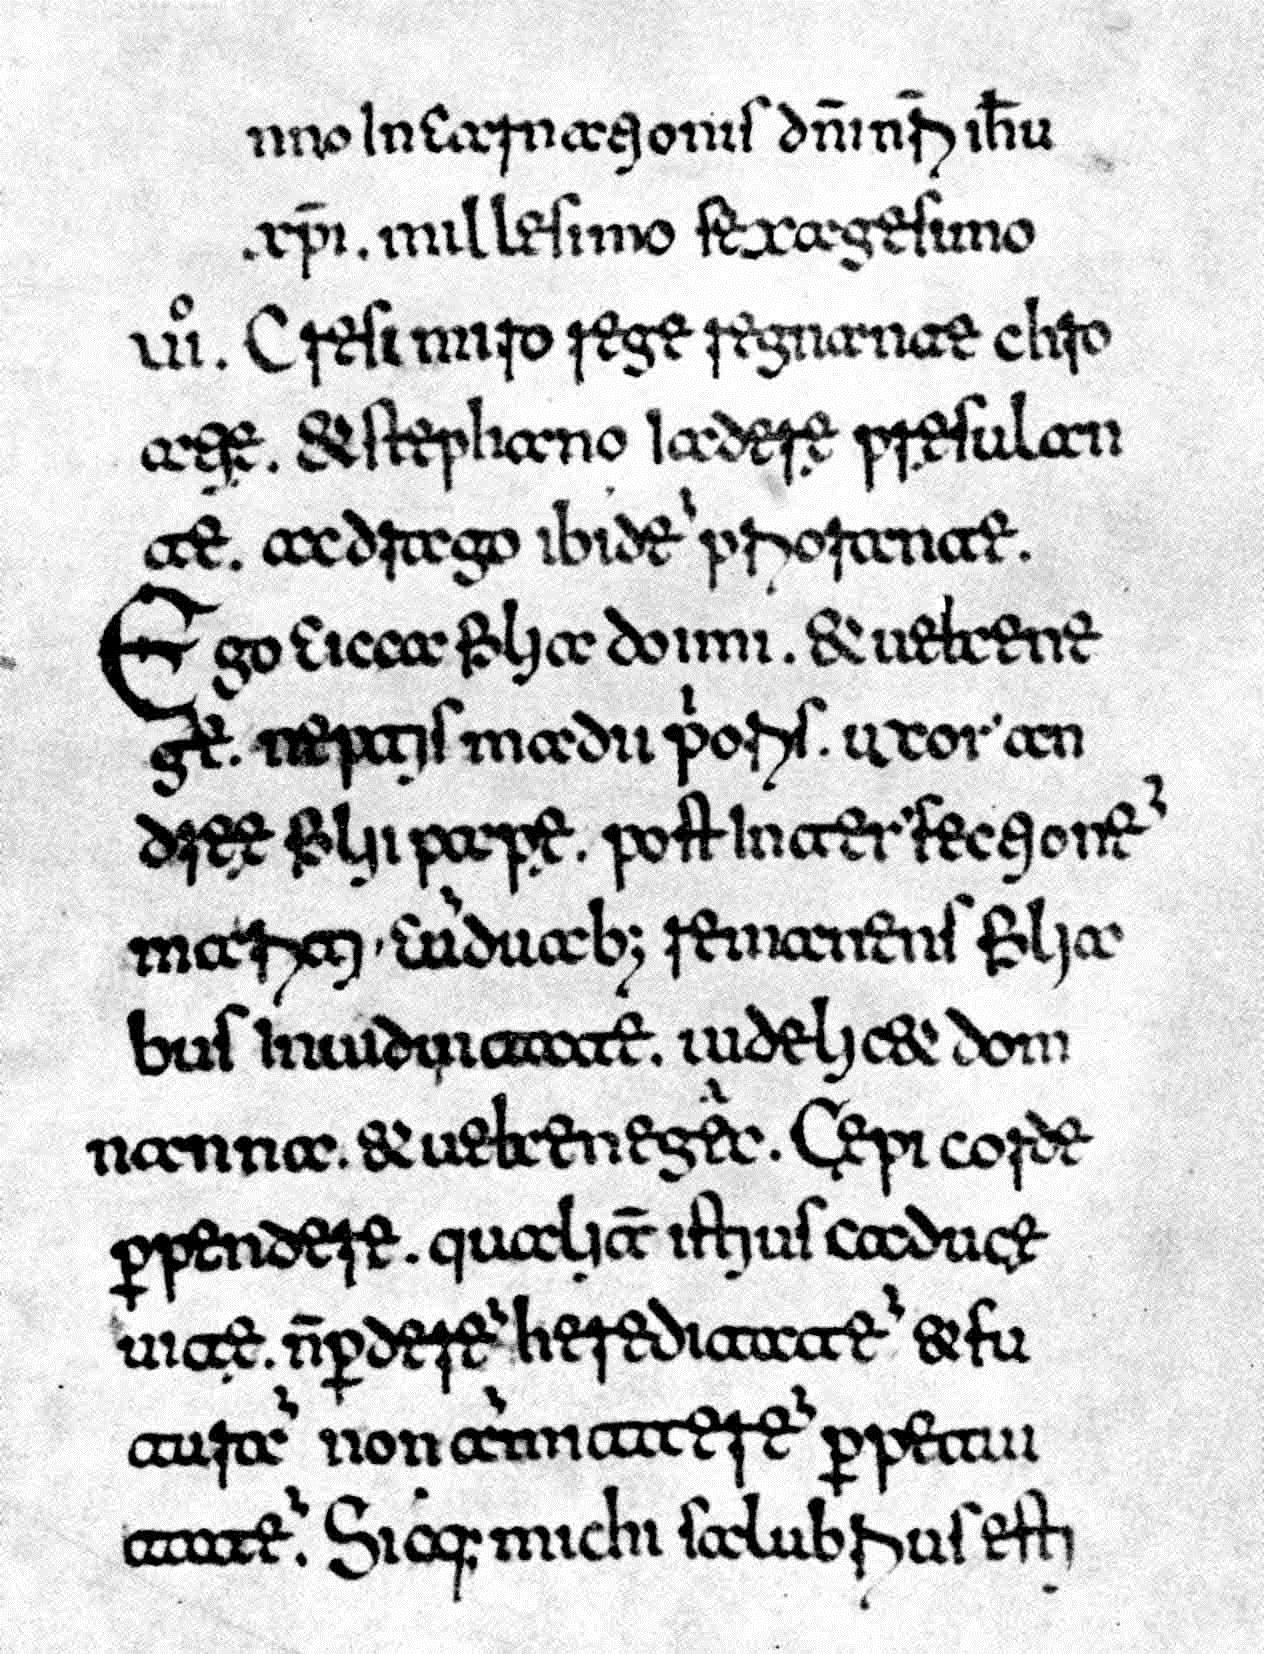 nno Incarnationis dn̄i nr̄i ih̄u
.xp̄i. millesimo sexagesimo
vi°. Cresimiro rege regnante chro
atię. & stephano Iaderę pręsulan
te. ac drago ibidē priorante.
Ego cicca filia doimi. & uekene
ge. neptis madii p̓oris. uxor an
dreę filii papę. post Interfectionē
mariti. cū duab; remanens filia
bus In uiduitate. uidelic& dom
nanna. & uekenega. Cępi corde
ꝑpendere. qualit̄ istius caducę
uitę. n̄ ꝑderē hereditatē & fu
turā non āmitterē ꝑpetui
tatē. Sicq; michi salubrius esti